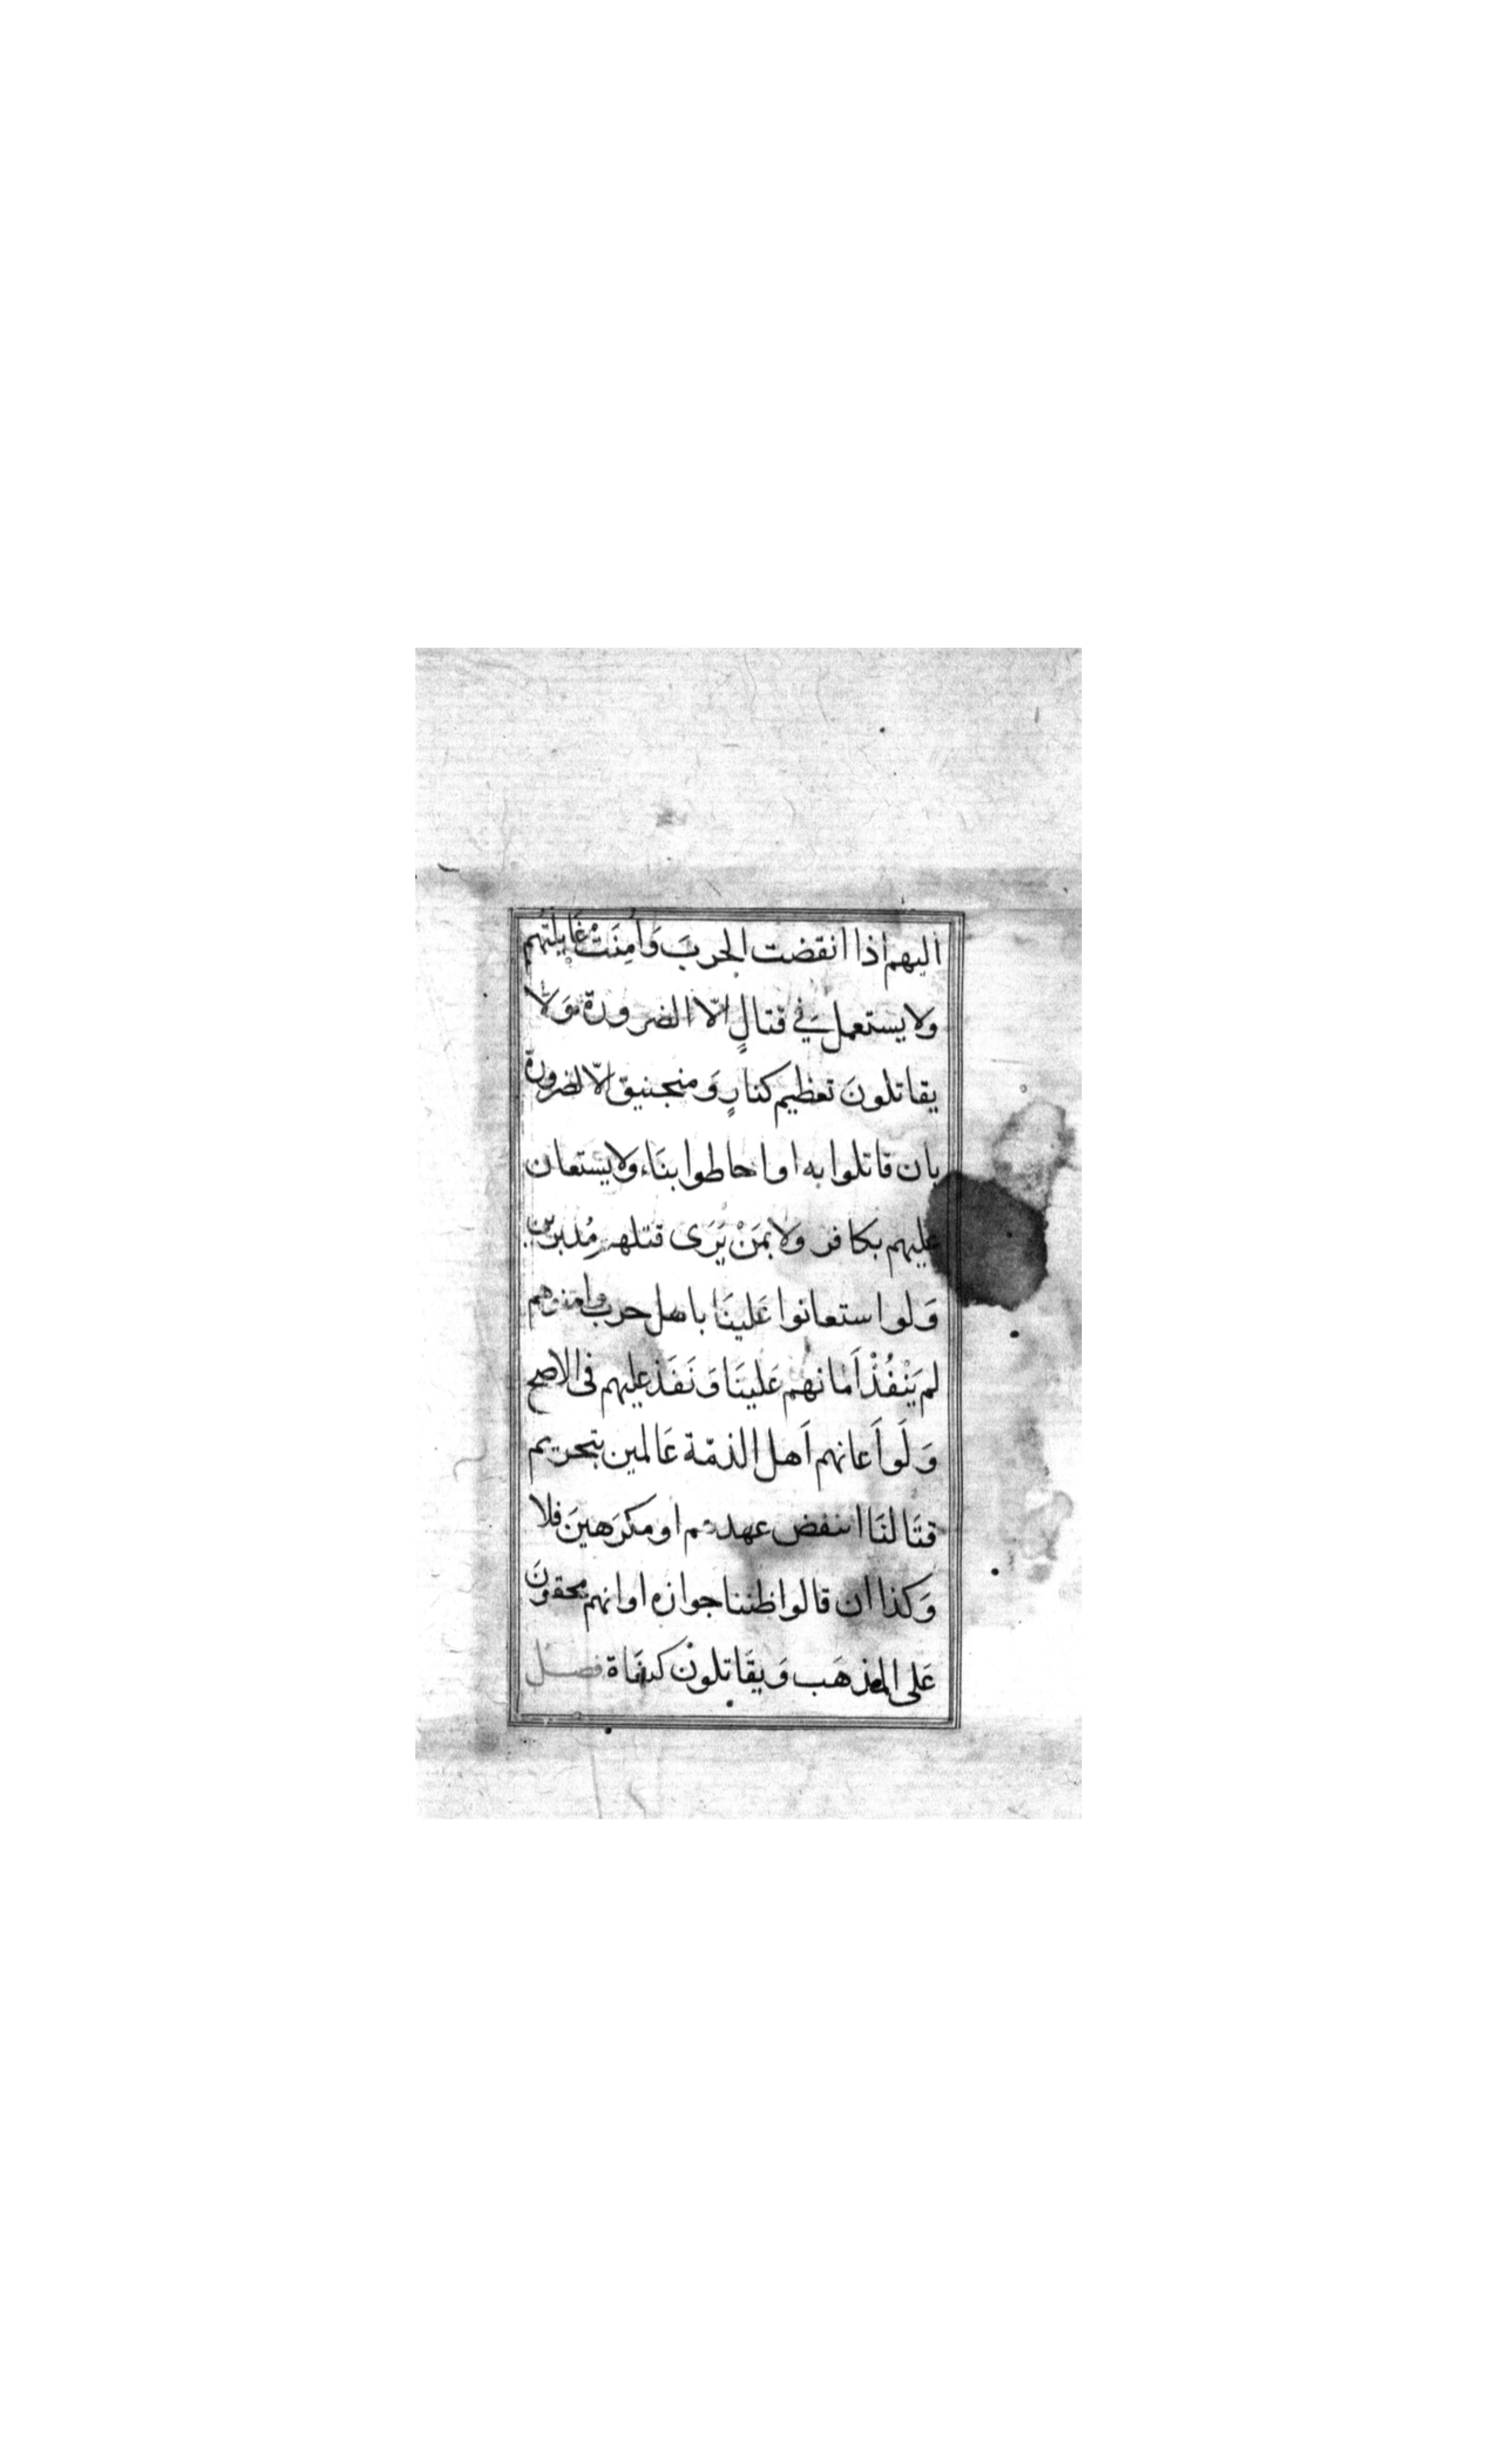 اليهم اذا انقضت الحربَ وَاُمِنَتْ غايلتهم
ولا يستعمل في قتالٍ الّا الضرورة وَلا
يقاتلونَ تعظيم كنارٍ وَمنجنيق الّا لضرورة
بان قاتلوا به او احاطوا بنَا، ولا يستعان
عليهم بكافر وَلا بمَنْ يَرَى قتلهم مُدبرين
وَلو استعانوا عَلينَا باهل حرب وامنوهم
لم يَنْفُذْ اَمَانهم عَلينَا وَنَفَذ عليهم فى الاصح
وَلَو اَعانهم اَهل الذمّة عَالمين بتحريم
قتَالنَا انتقض عهدهم او مكرَهينَ فلا
وَكذا ان قالوا ظننا جوازه او انهم محقونَ
عَلى المذهَب وَيقَاتلوْن كبغَاة فصل